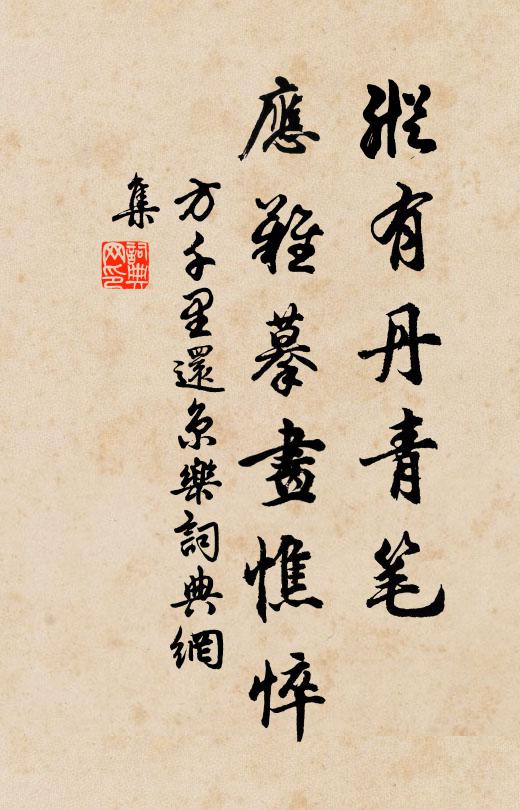 縱有丹青笔
應難摹畫憔悴
方千里還京樂詞典網
集
詞典网印